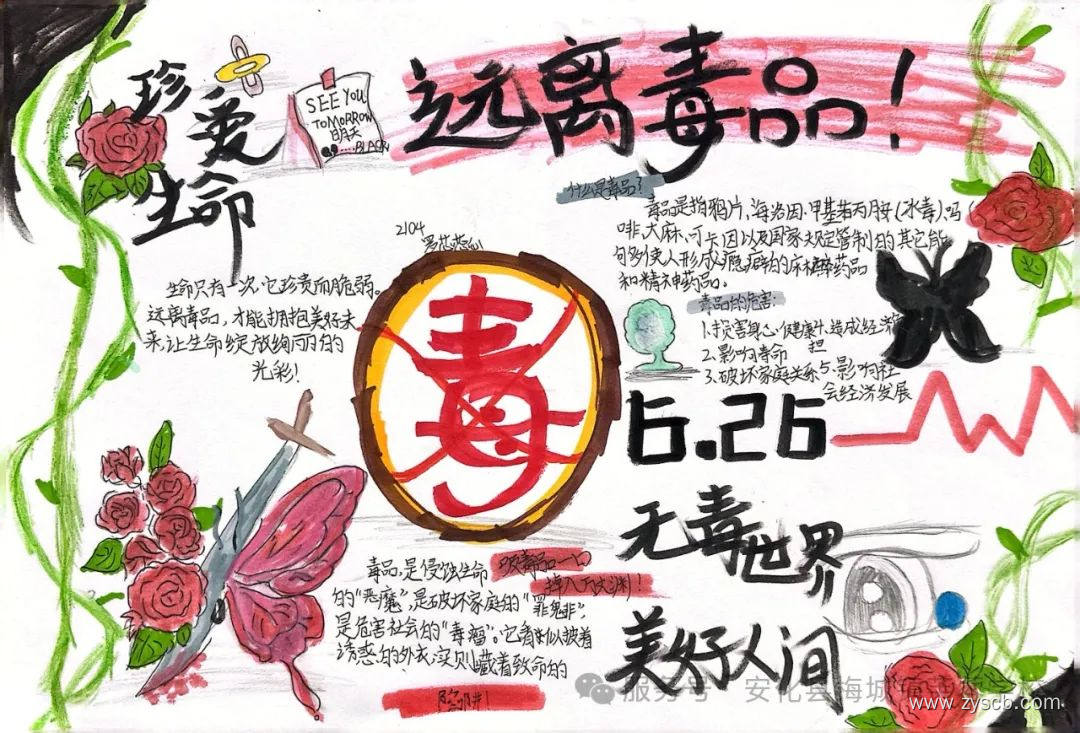 珍爱
生命
SEE YOU
TOMORROW
明天
远离毒品！
什么是毒品？
毒品是指鸦片、海洛因、甲基苯丙胺(冰毒)、吗
啡、大麻、可卡因以及国家规定管制的其它能
句多使人形成瘾癖的麻醉药品
和精神药品。
毒品的危害:
1.损害身心健康、造成经济
担
2.影响寿命
3.破坏家庭关系与影响社
会经济发展
2104
生命只有一次,它珍贵而脆弱。
远离毒品，才能拥抱美好未
来,让生命绽放绚丽的
光彩!
毒
6.26
无毒世界
美好人间
毒品,是侵蚀生命
的“恶魔”,是破坏家庭的“罪鬼非”,
是危害社会的“毒瘤”。它看似披着
诱惑的外衣,实则藏着致命的
陷阱!
吸毒品一口
掉入万丈渊!
服务号
安化县海城
www.zyscb.com